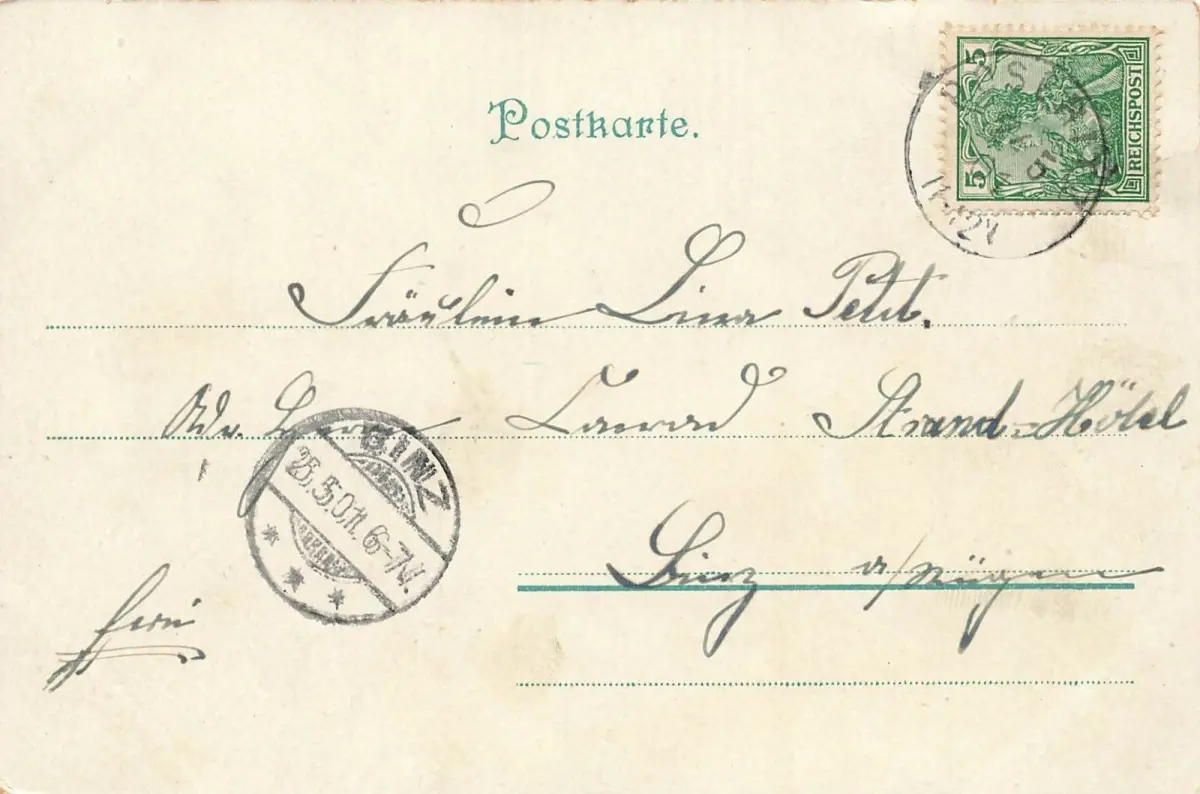 Postkarte.
5 5 REICHSPOST
11-12V
Fräulein Lina Petit.
Adr. Herrn Conrad Strand-Hôtel
BINZ
25.5.01. 6-7V.
Binz a/Rügen